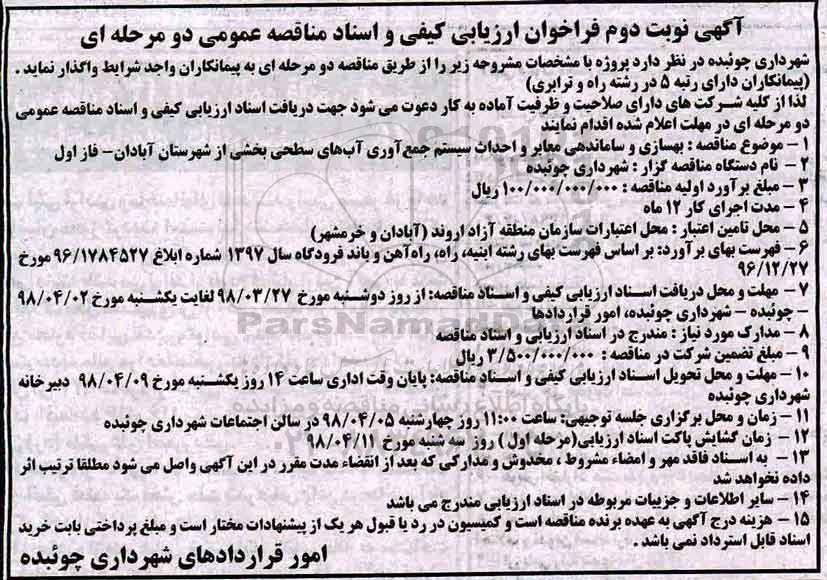 آگهی نوبت دوم فراخوان ارزیابی کیفی و اسناد مناقصه عمومی دو مرحله ای
شهرداری چوئبده در نظر دارد پروژه با مشخصات مشروحه زیر را از طریق مناقصه دو مرحله ای به پیمانکاران واجد شرایط واگذار نماید .
(پیمانکاران دارای رتبه ۵ در رشته راه و ترابری)
لذا از کلیه شرکت های دارای صلاحیت و ظرفیت آماده به کار دعوت می شود جهت دریافت اسناد ارزیابی کیفی و اسناد مناقصه عمومی
دو مرحله ای در مهلت اعلام شده اقدام نمایند
۱ – موضوع مناقصه : بهسازی و ساماندهی معابر و احداث سیستم جمع‌آوری آب‌های سطحی بخشی از شهرستان آبادان– فاز اول
۲ – نام دستگاه مناقصه گزار : شهرداری چوئبده
۳ – مبلغ برآورد اولیه مناقصه : ۱۰۰/۰۰۰/۰۰۰/۰۰۰ ریال
۴ – مدت اجرای کار ۱۲ ماه
۵ – محل تامین اعتبار : محل اعتبارات سازمان منطقه آزاد اروند (آبادان و خرمشهر)
۶ – فهرست بهای برآورد: بر اساس فهرست بهای رشته ابنیه، راه، راه‌آهن و باند فرودگاه سال ۱۳۹۷ شماره ابلاغ ۹۶/۱۷۸۴۵۲۷ مورخ
۹۶/۱۲/۲۷
۷ – مهلت و محل دریافت اسناد ارزیابی کیفی و اسناد مناقصه: از روز دوشنبه مورخ ۹۸/۰۳/۲۷ لغایت یکشنبه مورخ ۹۸/۰۴/۰۲
– چوئبده – شهرداری چوئبده، امور قراردادها
۸ – مدارک مورد نیاز : مندرج در اسناد ارزیابی و اسناد مناقصه
۹ – مبلغ تضمین شرکت در مناقصه : ۳/۵۰۰/۰۰۰/۰۰۰ ریال
۱۰ – مهلت و محل تحویل اسناد ارزیابی کیفی و اسناد مناقصه: پایان وقت اداری ساعت ۱۴ روز یکشنبه مورخ ۹۸/۰۴/۰۹ دبیرخانه
شهرداری چوئبده
۱۱ – زمان و محل برگزاری جلسه توجیهی: ساعت ۱۱:۰۰ روز چهارشنبه ۹۸/۰۴/۰۵ در سالن اجتماعات شهرداری چوئبده
۱۲ – زمان گشایش پاکت اسناد ارزیابی(مرحله اول ) روز سه شنبه مورخ ۹۸/۰۴/۱۱
۱۳ – به اسناد فاقد مهر و امضاء مشروط ، مخدوش و مدارکی که بعد از انقضاء مدت مقرر در این آگهی واصل می شود مطلقا ترتیب اثر
داده نخواهد شد
۱۴ – سایر اطلاعات و جزییات مربوطه در اسناد ارزیابی مندرج می باشد
۱۵ – هزینه درج آگهی به عهده برنده مناقصه است و کمیسیون در رد یا قبول هر یک از پیشنهادات مختار است و مبلغ پرداختی بابت خرید
اسناد قابل استرداد نمی باشد .
امور قراردادهای شهرداری چوئبده
ParsNamadData